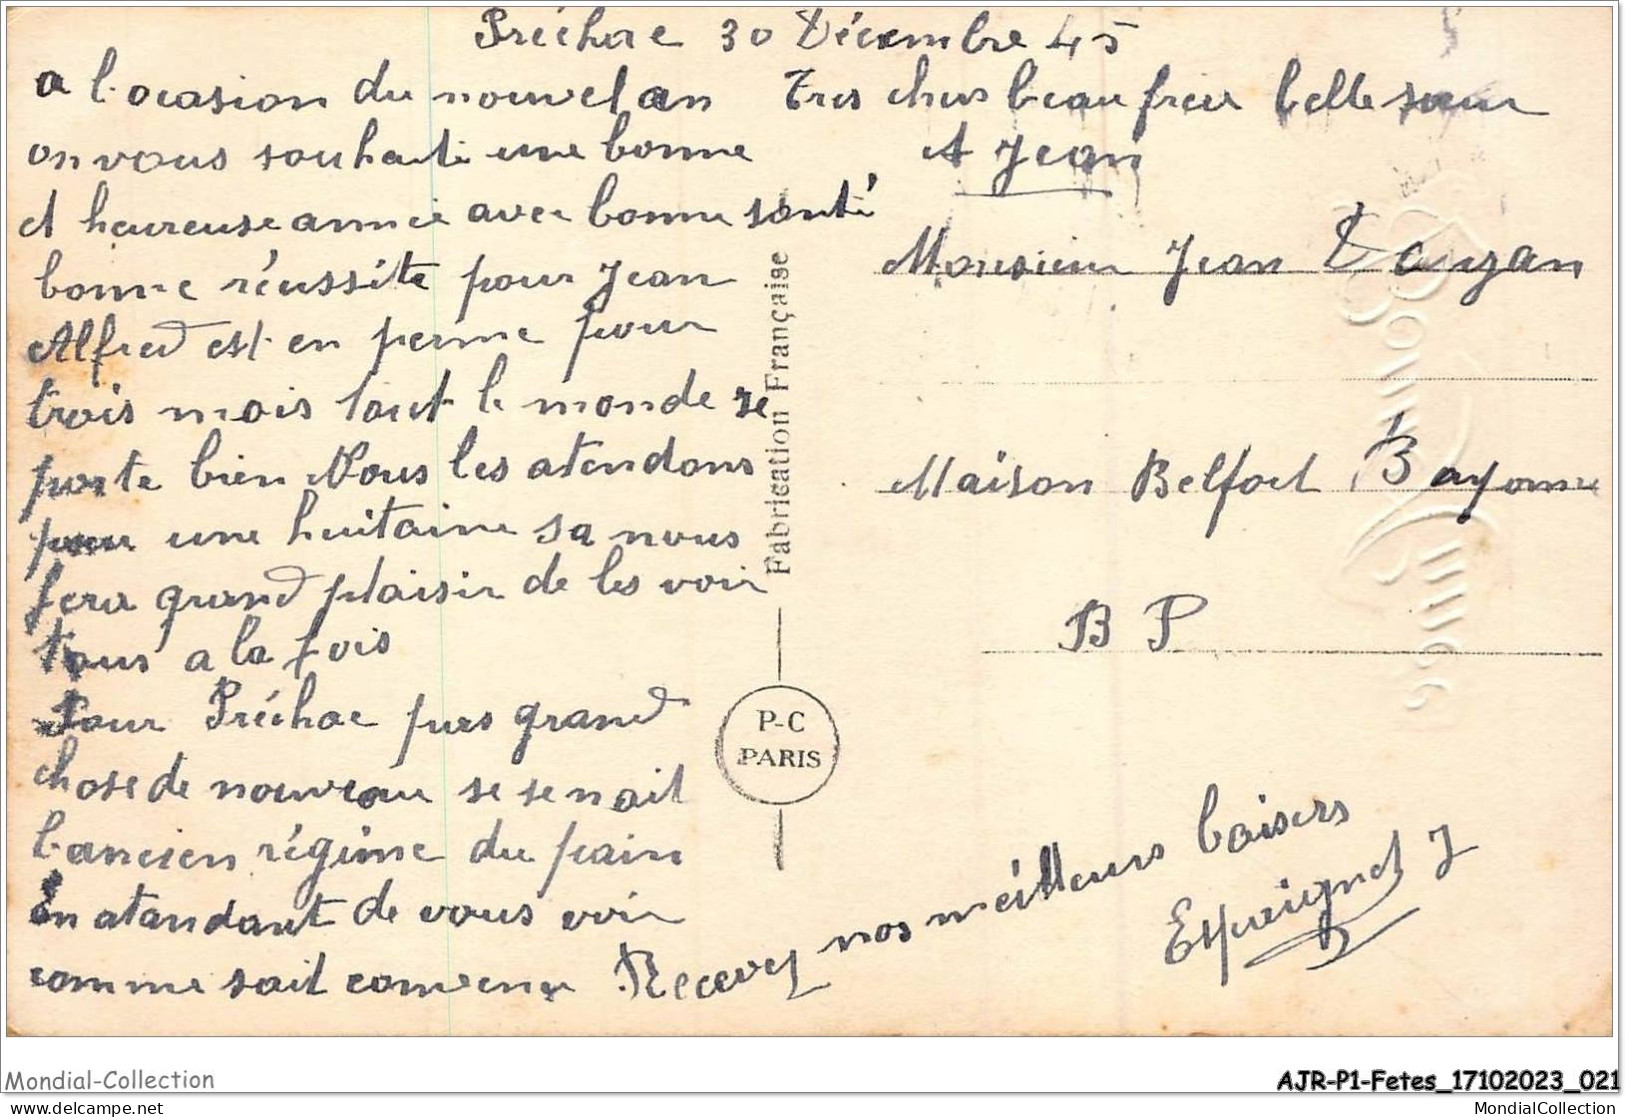 Préchac 30 Décembre 45
a l.ocasion du nouvel an
on vous souhaite une bonne
et heureuse année avec bonne santé
bonne réussite pour Jean
Alfred est en perme pour
trois mois tout le monde se
porte bien Nous les atendons
pour une huitaine sa nous
fera grand plaisir de les voir
tous a la fois
Pour Préchac pas grand
chose de nouveau se senait
l.ancien régime du pain
En atandant de vous voir
comme sait convenu Recevez nos meilleurs baisers
Espaignet J
Tres chers beau frere belle soeur
et Jean
Monsieur Jean Dauzan
Maison Belfort Bayonne
B P
Fabrication Française
P-C
PARIS
Bonne Année
Mondial-Collection
AJR-P1-Fetes_17102023_021
www.delcampe.net
MondialCollection